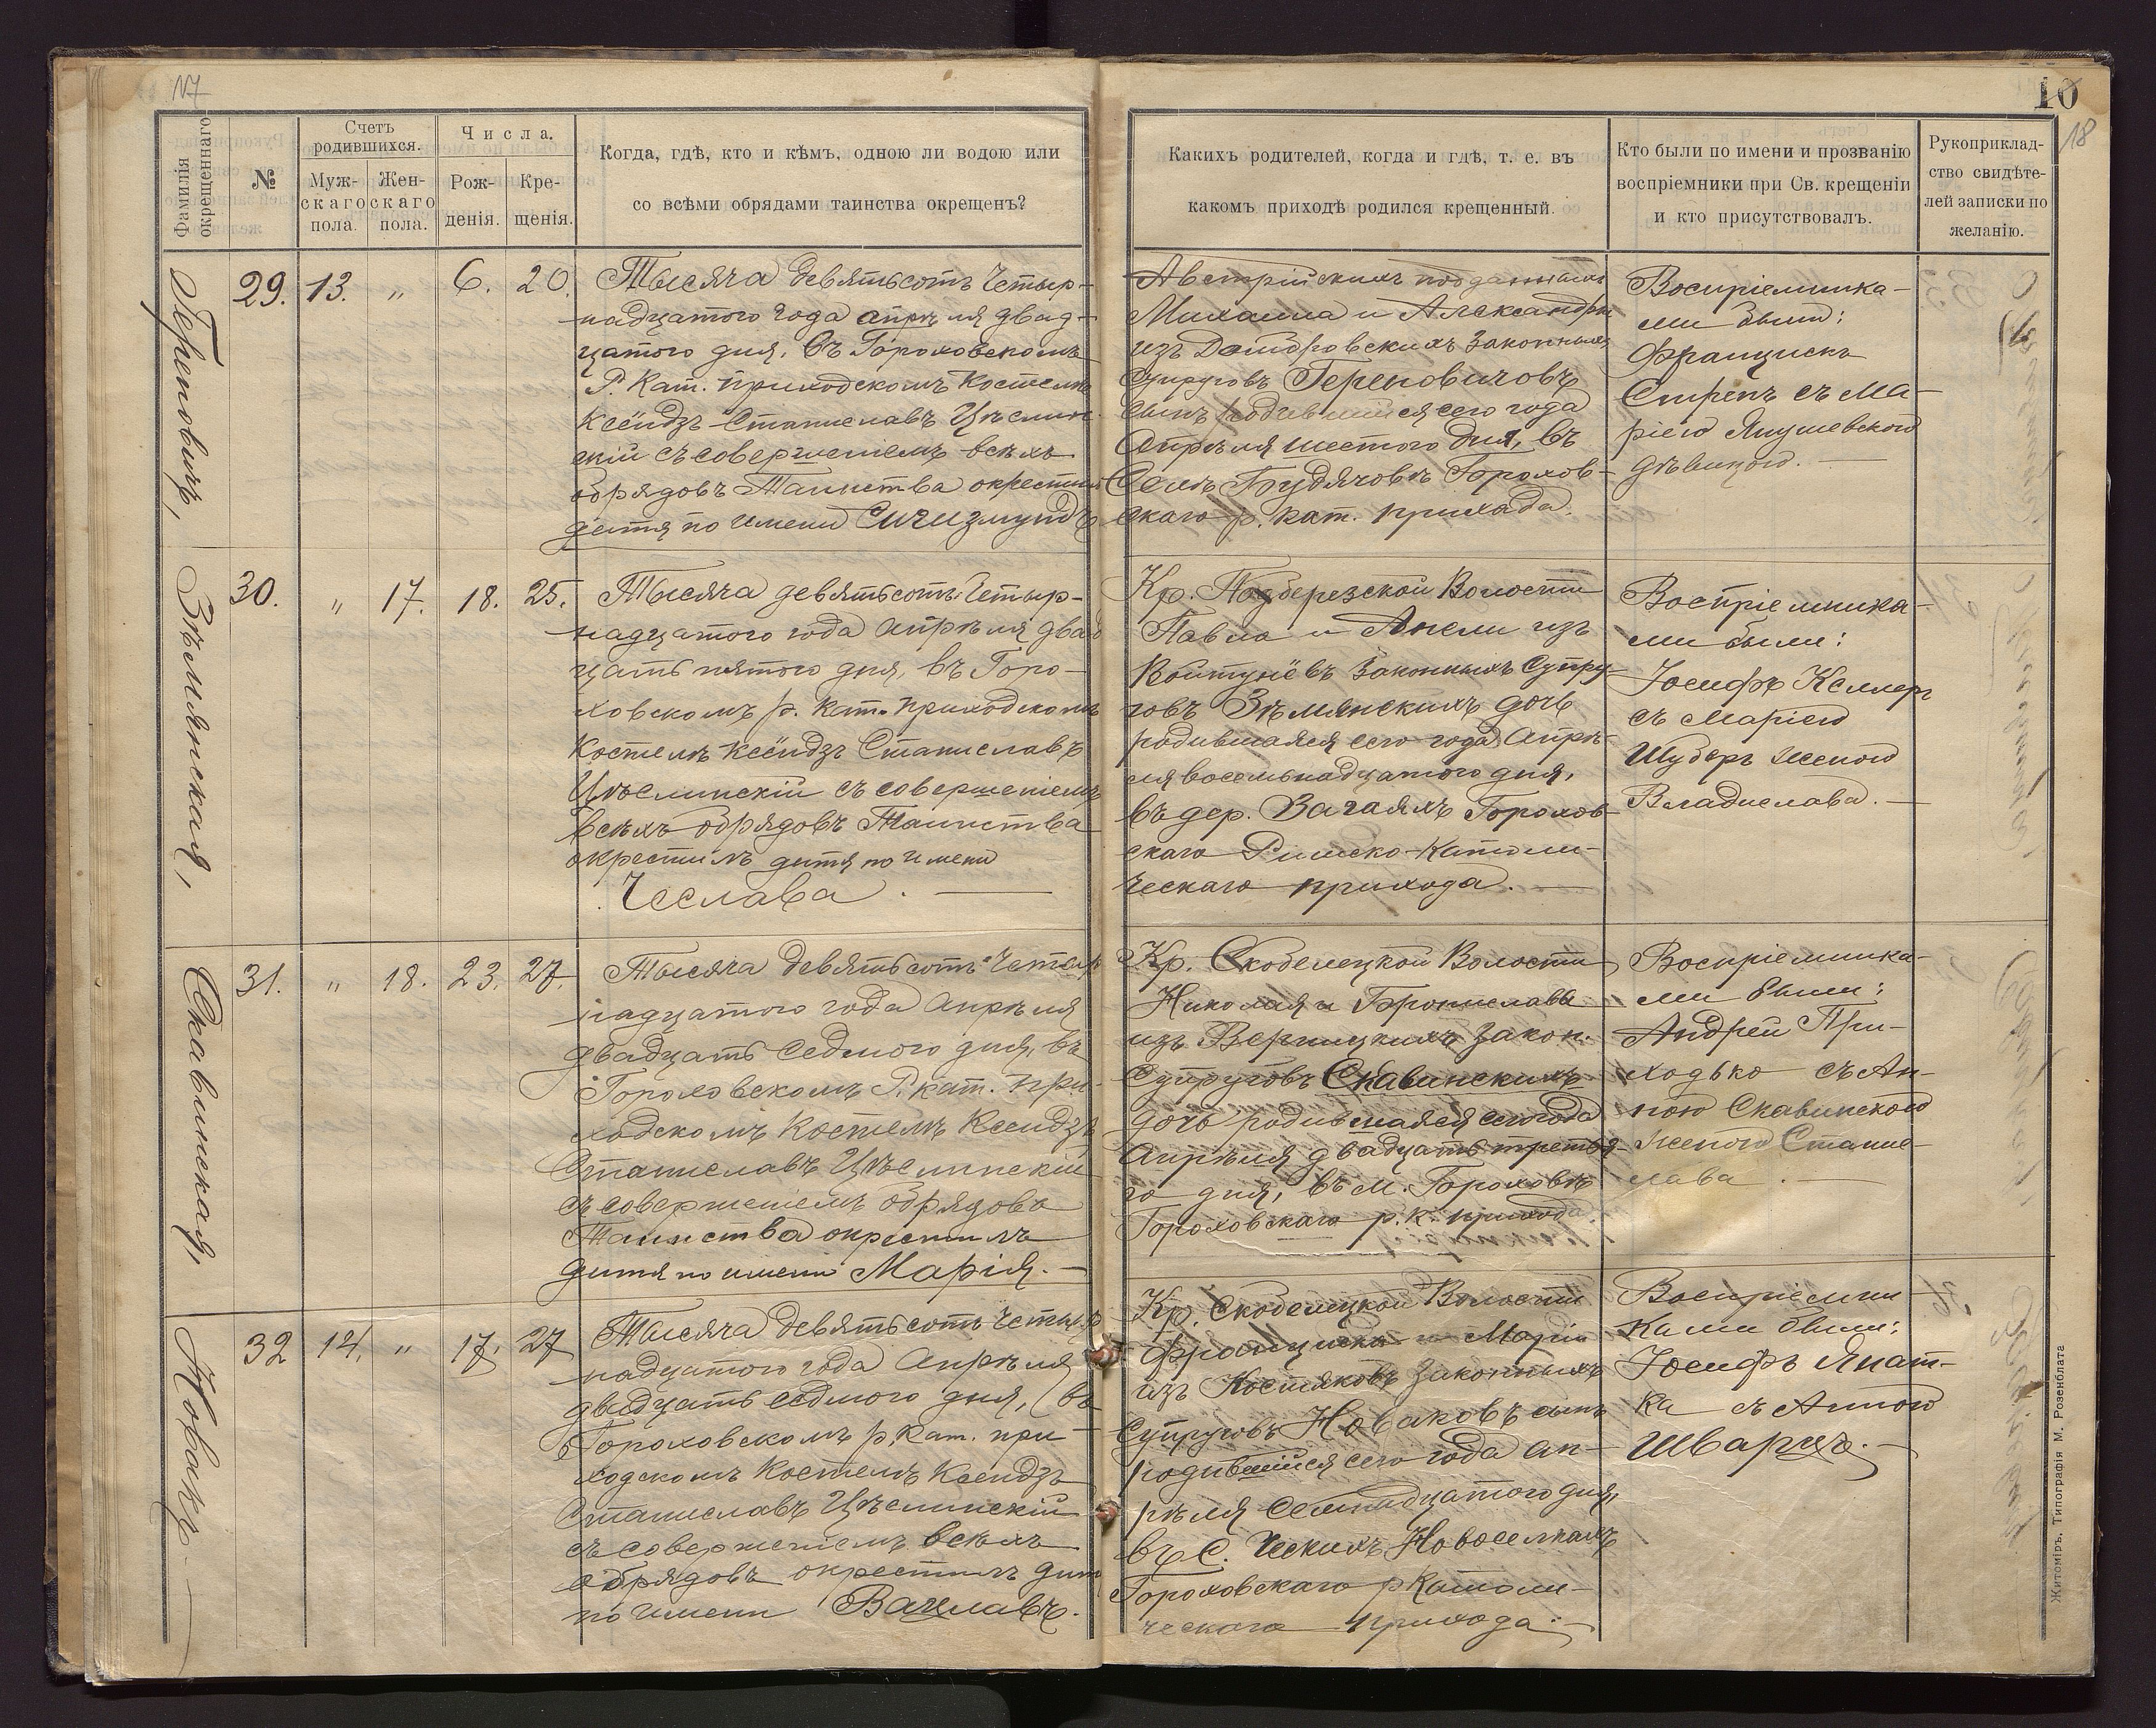 17
10
18
Фамилія окрещеннаго
№
Счетъ родившихся.
Мужскаго пола.
Женскаго пола.
Числа.
Рожденія.
Крещенія.
Когда, гдѣ, кто и кѣмъ, одною ли водою или
со всѣми обрядами таинства окрещенъ?
Какихъ родителей, когда и гдѣ, т. е. въ
какомъ приходѣ родился крещенный.
Кто были по имени и прозванію
воспріемники при Св. крещеніи
и кто присутствовалъ.
Рукоприклад-
ство свидѣте-
лей записки по
желанію.
Гереновичъ,
29. 13. „ 6. 20.
Тысяча девятьсотъ четыр-
надцатого года апрѣля двад-
цатого дня, въ Гороховскомъ
Р. Кат. приходскомъ Костелѣ
Ксёндзъ Станиславъ Цѣслин-
скій съ совершеніемъ всѣхъ
обрядовъ Таинства окрестилъ
дитя по имени Сигизмундъ
Австрійскихъ подданныхъ
Михаила и Александры
изъ Домбровскихъ законныхъ
Супруговъ Гереновичовъ
сынъ родившійся сего года
Апрѣля шестого дня, въ
Селѣ Грудячовѣ Горохов-
скаго р. кат. прихода.
Воспріемника-
ми были:
Францискъ
Стрепъ съ Ма-
ріею Янушевскою
дѣвицою.
Зѣмянская,
30. „ 17. 18. 25.
Тысяча девятьсотъ четыр-
надцатого года апрѣля двад
цать пятого дня, въ Горо-
ховскомъ р. кат. приходскомъ
Костелѣ Ксёндзъ Станиславъ
Цѣслинскій съ совершеніемъ
всѣхъ обрядовъ Таинства
окрестилъ дитя по имени
Чеслава.
Кр. Подберезской Волости
Павла и Анели изъ
Войтунёвъ законныхъ Супру-
говъ Зѣмянскихъ дочь
родившаяся сего года Апрѣ-
ля восемьнадцатого дня,
въ дер. Загаяхъ Горохов-
скаго Римско-Католи-
ческаго прихода.
Воспріемника-
ми были:
Іосифъ Келлеръ
съ Маріею
Шуберъ женою
Владислава.
Скавинская,
31. „ 18. 23. 27.
Тысяча девятьсотъ четыр
надцатого года Апрѣля
двадцать седмого дня, въ
Гороховскомъ Р. кат. при-
ходскомъ Костелѣ Ксендзъ
Станиславъ Цѣслинскій
съ совершеніемъ обрядовъ
Таинства окрестилъ
дитя по имени Марія.
Кр. Скобелецкой Волости
Николая и Брониславы
изъ Вергицкихъ закон.
Супруговъ Скавинскихъ
дочь родившаяся сего года
Апрѣля двадцать третья-
го дня, въ м. Гороховѣ
Гороховскаго р. к. прихода.
Воспріемника-
ми были:
Андрей При-
ходько съ Ан-
ною Скавинскою
женою Стани-
слава.
Новакъ.
32 14. „ 17. 27
Тысяча девятьсотъ четыр
надцатого года Апрѣля
двадцать седмого дня, въ
Гороховскомъ р. кат. при-
ходскомъ Костелѣ Ксендзъ
Станиславъ Цѣслинскій
съ совершеніемъ всѣхъ
обрядовъ окрестилъ дитя
по имени Вацлавъ.
Кр. Скобелецкой Волости
Франциска и Маріи
изъ Костяковъ законныхъ
Супруговъ Новаковъ сынъ
родившійся сего года Ап-
рѣля семнадцатого дня,
въ С. Ческихъ Новоселкахъ
Гороховскаго р Католи-
ческаго прихода.
Воспріемни-
ками были:
Іосифъ Янат-
ка съ Анною
Шварцъ.
Житоміръ, Типографія М. Розенблата